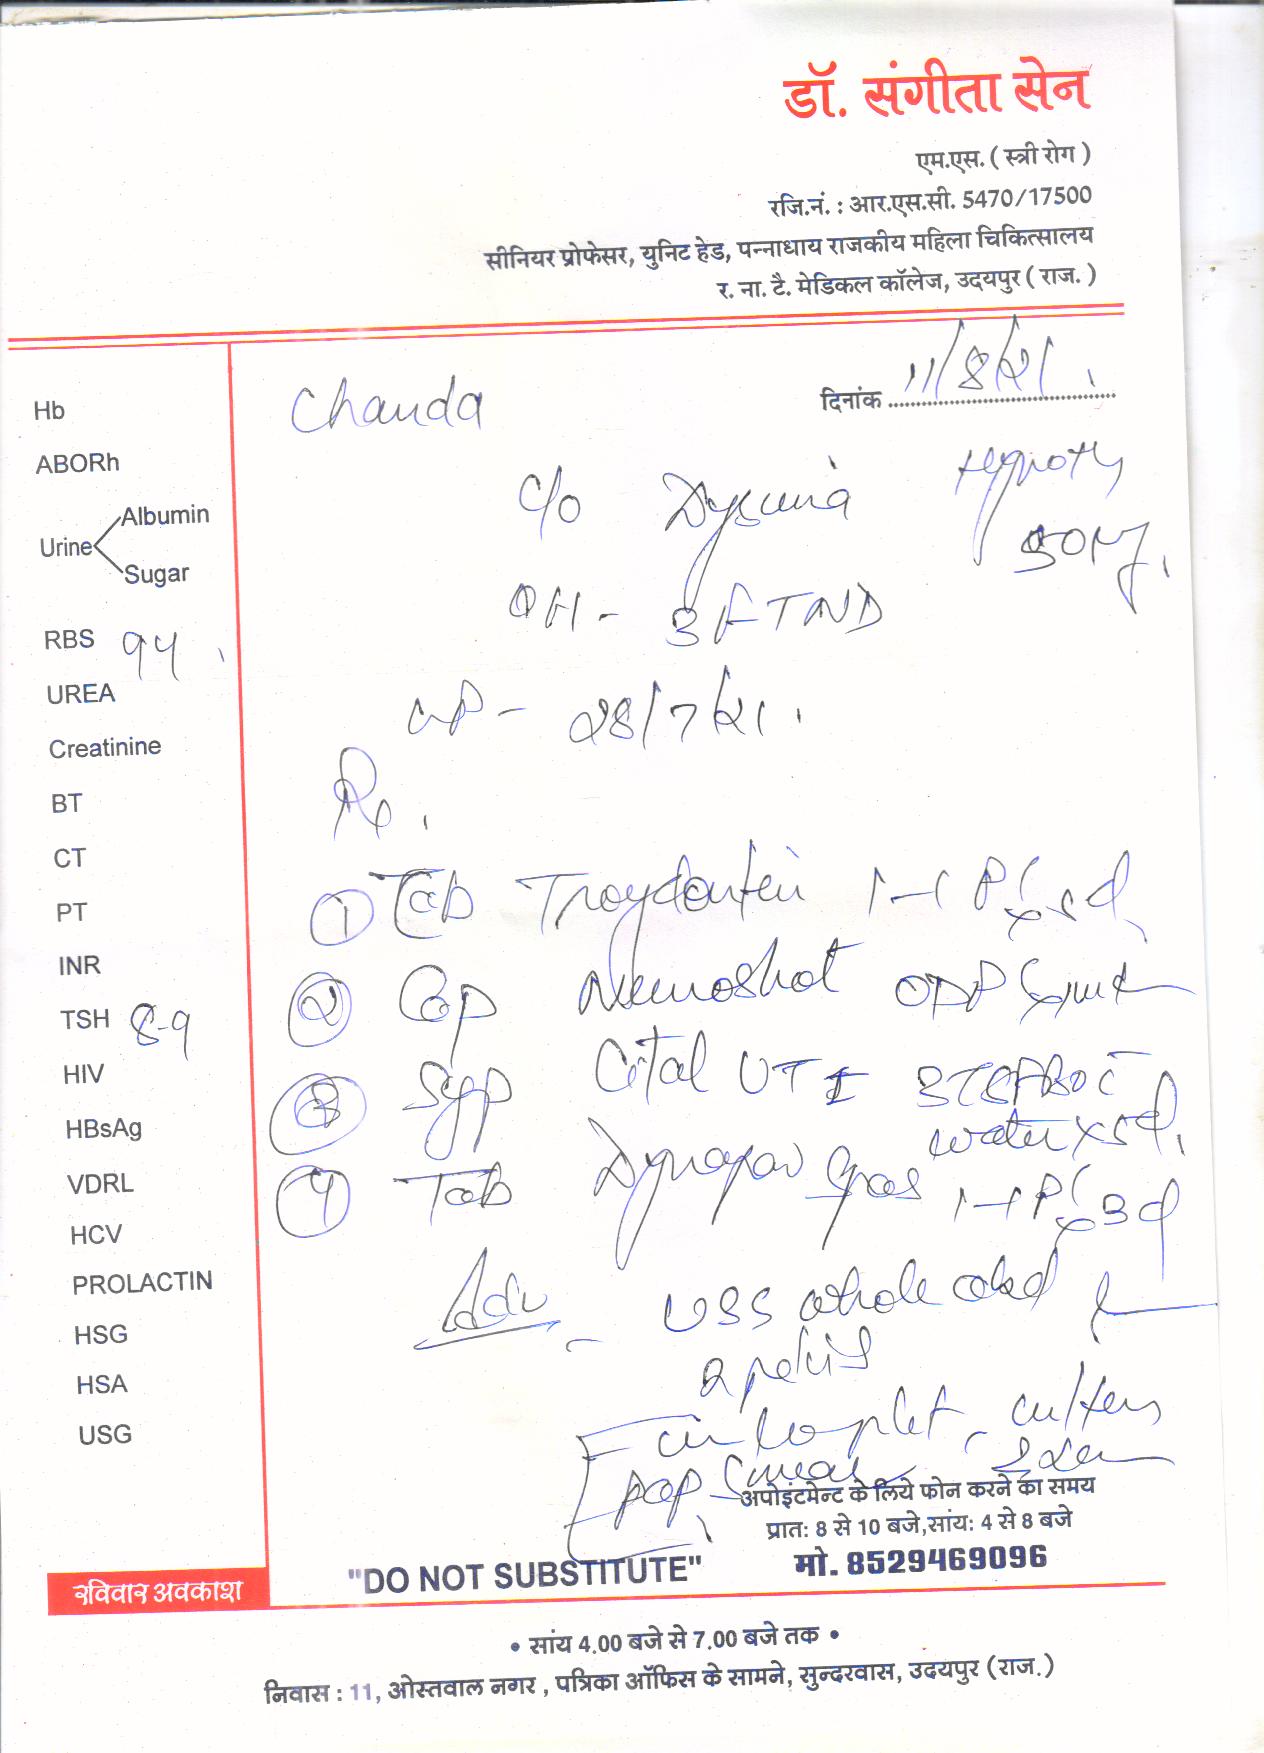 डॉ. संगीता सेन
एम.एस. ( स्त्री रोग )
रजि.नं. : आर.एस.सी. 5470/17500
सीनियर प्रोफेसर, युनिट हेड, पन्नाधाय राजकीय महिला चिकित्सालय
र. ना. टै. मेडिकल कॉलेज, उदयपुर ( राज. )
दिनांक 11/8/21.
Chanda
Hb
ABORh
Urine
Albumin
Sugar
RBS 94
UREA
Creatinine
BT
CT
PT
INR
TSH 8-9
HIV
HBsAg
VDRL
HCV
PROLACTIN
HSG
HSA
USG
C/o Dysuria
Hypothy
50
OH - 3 FTND
- 28/7/21.
Rx.
① Tab 1-1 x 5d
② Cap Neuroshot OD
③ Syp Cital UTI 3TSF BD c̄
water x 5d.
④ Tab Dynapar 1-1 x 3d
Adv - USS whole abd
pelvis
pap Smear
अपोइंटमेन्ट के लिये फोन करने का समय
प्रात: 8 से 10 बजे,सांय: 4 से 8 बजे
मो. 8529469096
"DO NOT SUBSTITUTE"
रविवार अवकाश
• सांय 4.00 बजे से 7.00 बजे तक •
निवास : 11, ओस्तवाल नगर , पत्रिका ऑफिस के सामने, सुन्दरवास, उदयपुर (राज.)